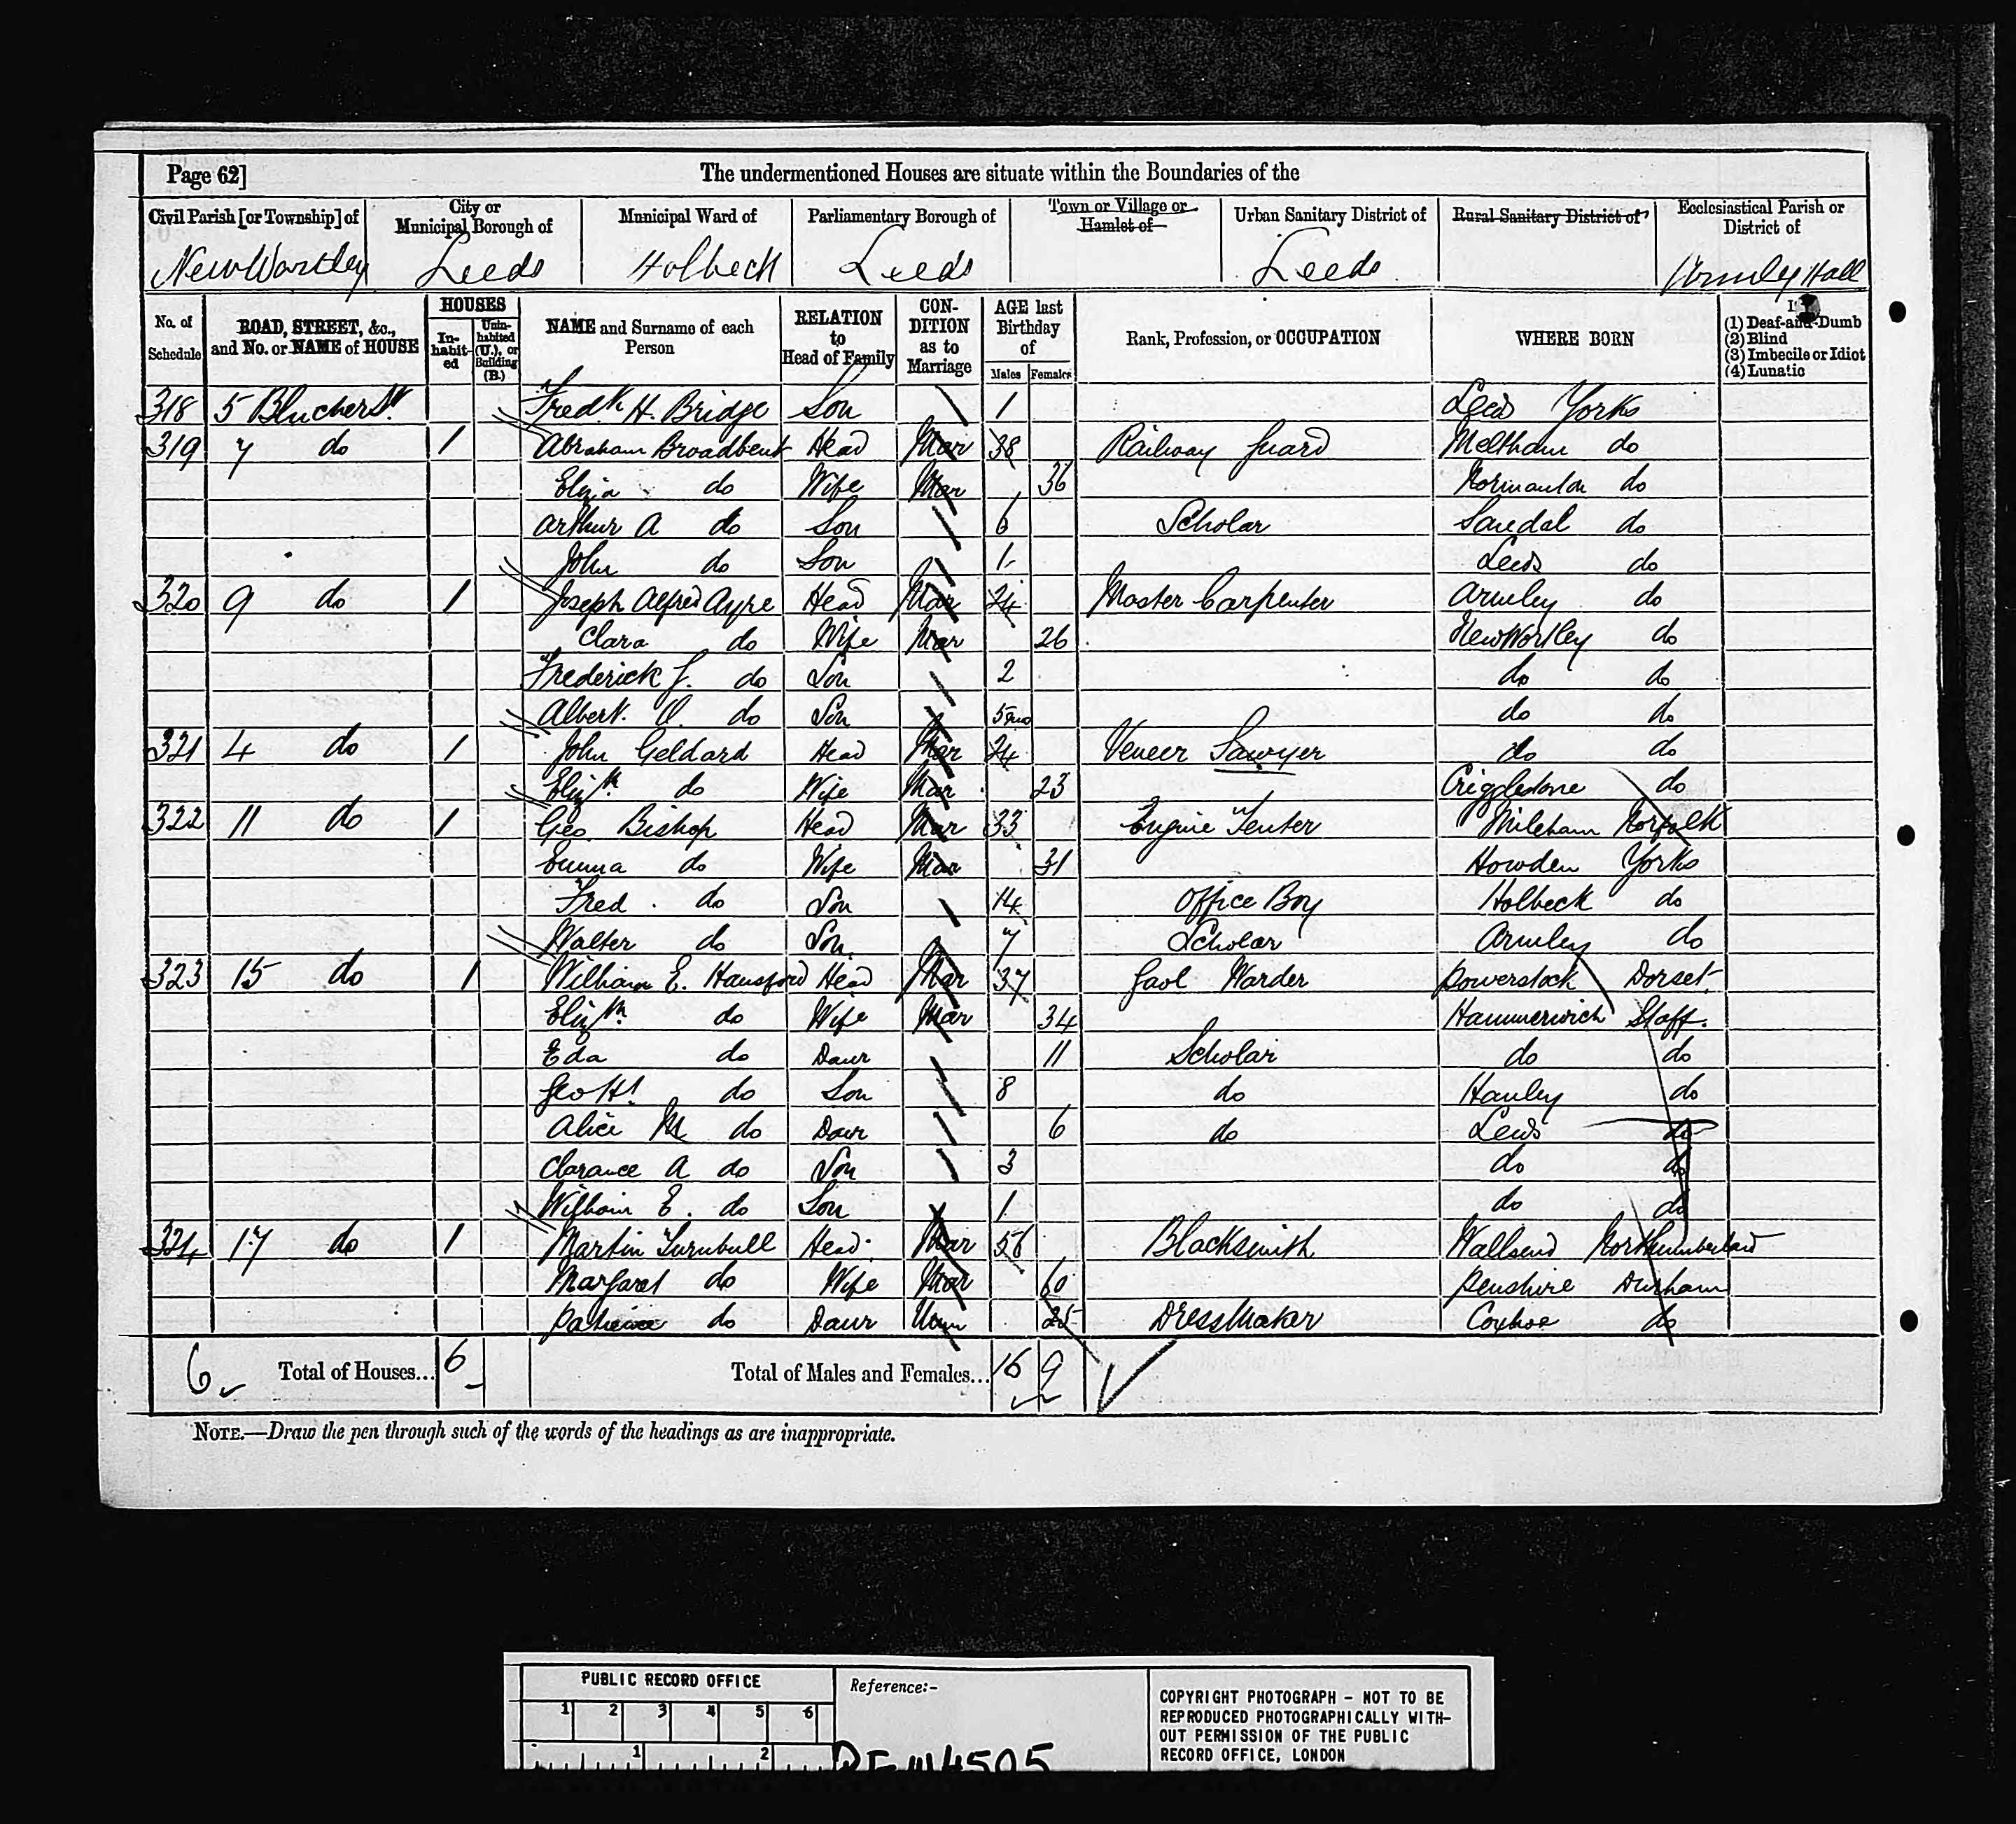 Page 62] The undermentioned Houses are situate within the Boundaries of the
Civil Parish [or Township] of City or Municipal Borough of Municipal Ward of Parliamentary Borough of Town or Village or Hamlet of Urban Sanitary District of Rural Sanitary District of Ecclesiastical Parish or District of
New Wortley Leeds Holbeck Leeds Leeds Armley Hall
No. of Schedule ROAD, STREET, &c., and No. or NAME of HOUSE HOUSES In-habit-ed Unin-habited (U.), or Building (B.) NAME and Surname of each Person RELATION to Head of Family CON-DITION as to Marriage AGE last Birthday of Males Females Rank, Profession, or OCCUPATION WHERE BORN (1) Deaf-and-Dumb (2) Blind (3) Imbecile or Idiot (4) Lunatic
318 5 Blucher St Fredk H. Bridge Son 1 Leeds Yorks
319 7 do 1 Abraham Broadbent Head Mar 38 Railway Guard Meltham do
Eliza do Wife Mar 36 Normanton do
Arthur A do Son 6 Scholar Sandal do
John do Son 1 Leeds do
320 9 do 1 Joseph Alfred Ayre Head Mar 24 Master Carpenter Armley do
Clara do Wife Mar 26 New Wortley do
Frederick J. do Son 2 do do
Albert O. do Son 5mo do do
321 4 do 1 John Geldard Head Mar 24 Veneer Sawyer do do
Elizth do Wife Mar 23 Crigglestone do
322 11 do 1 Geo Bishop Head Mar 33 Engine Tenter Mileham Norfolk
Emma do Wife Mar 31 Howden Yorks
Fred do Son 14 Office Boy Holbeck do
Walter do Son 7 Scholar Armley do
323 15 do 1 William E. Hansford Head Mar 37 Gaol Warder Powerstock Dorset
Elizth do Wife Mar 34 Hammerwich Staff.
Eda do Daur 11 Scholar do do
Geo H do Son 8 do Hanley do
Alice M do Daur 6 do Leeds do
Clarance A do Son 3 do do
William E. do Son 1 do do
324 17 do 1 Martin Turnbull Head Mar 56 Blacksmith Wallsend Northumberland
Margaret do Wife Mar 60 Penshire Durham
Patience do Daur Unm 25 DressMaker Coxhoe do
6 Total of Houses... 6 Total of Males and Females... 16 9
NOTE.—Draw the pen through such of the words of the headings as are inappropriate.
PUBLIC RECORD OFFICE
1 2 3 4 5 6
1 2
Reference:-
COPYRIGHT PHOTOGRAPH - NOT TO BE
REPRODUCED PHOTOGRAPHICALLY WITH-
OUT PERMISSION OF THE PUBLIC
RECORD OFFICE, LONDON